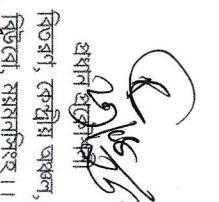 প্রধান প্রকৌশলী
বিতরণ, কেন্দ্রীয় অঞ্চল,
বিউবো, ময়মনসিংহ ।।